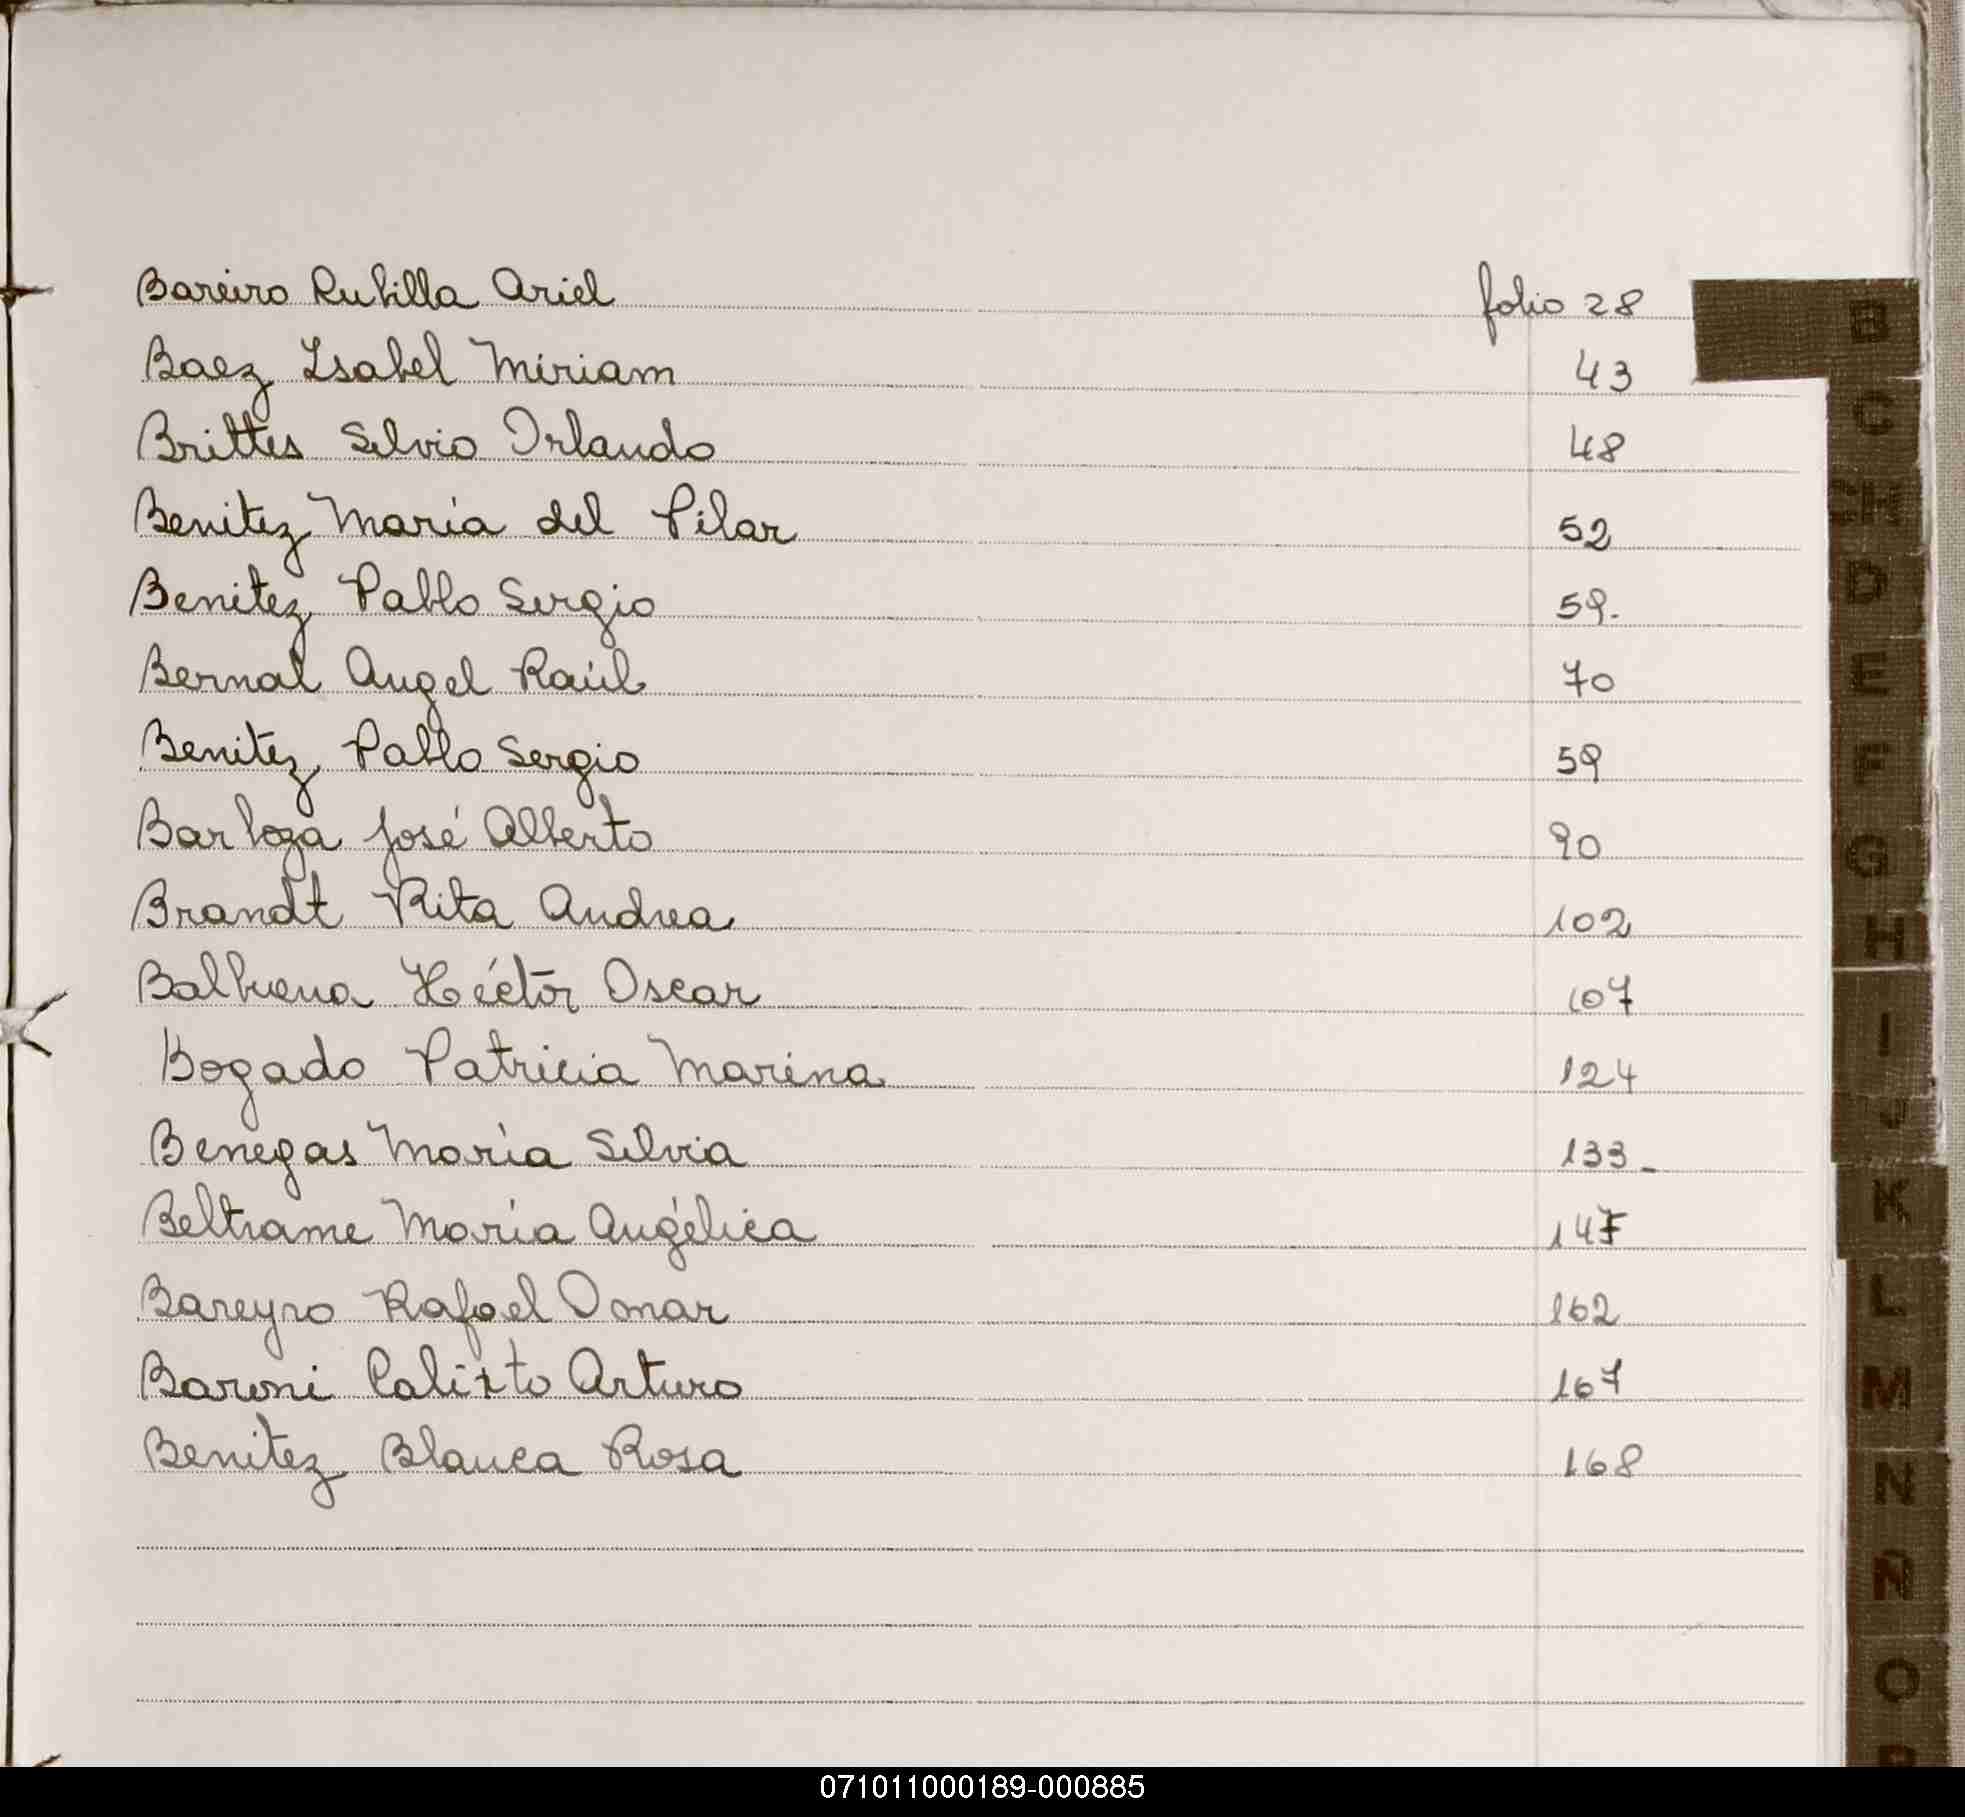 Bareiro Rubilla Ariel folio 28
Baez Isabel Miriam 43
Brittes Silvio Orlando 48
Benitez María del Pilar 52
Benitez Pablo Sergio 59.
Bernal Angel Raúl 70
Benitez Pablo Sergio 59
Barboza José Alberto 90
Brandt Rita Andrea 102
Balbuena Héctor Oscar 107
Bogado Patricia Marina 124
Benegas María Silvia 133-
Beltrame María Angélica 147
Bareyro Rafael Omar 162
Baroni Calixto Arturo 167
Benitez Blanca Rosa 168
B
C
CH
D
E
F
G
H
I
J
K
L
M
N
Ñ
O
071011000189-000885